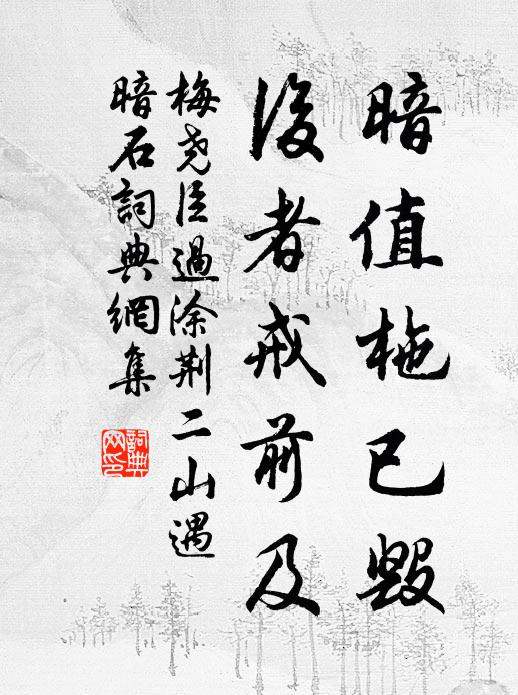 暗值柂已毀
後者戒前及
梅堯臣過涂荆二山遇
暗石詞典網集
詞典
网印